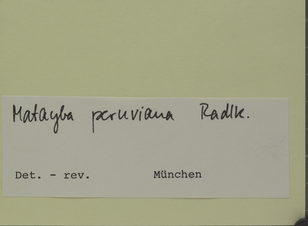 Matayba peruviana Radlk.
Det. - rev. München